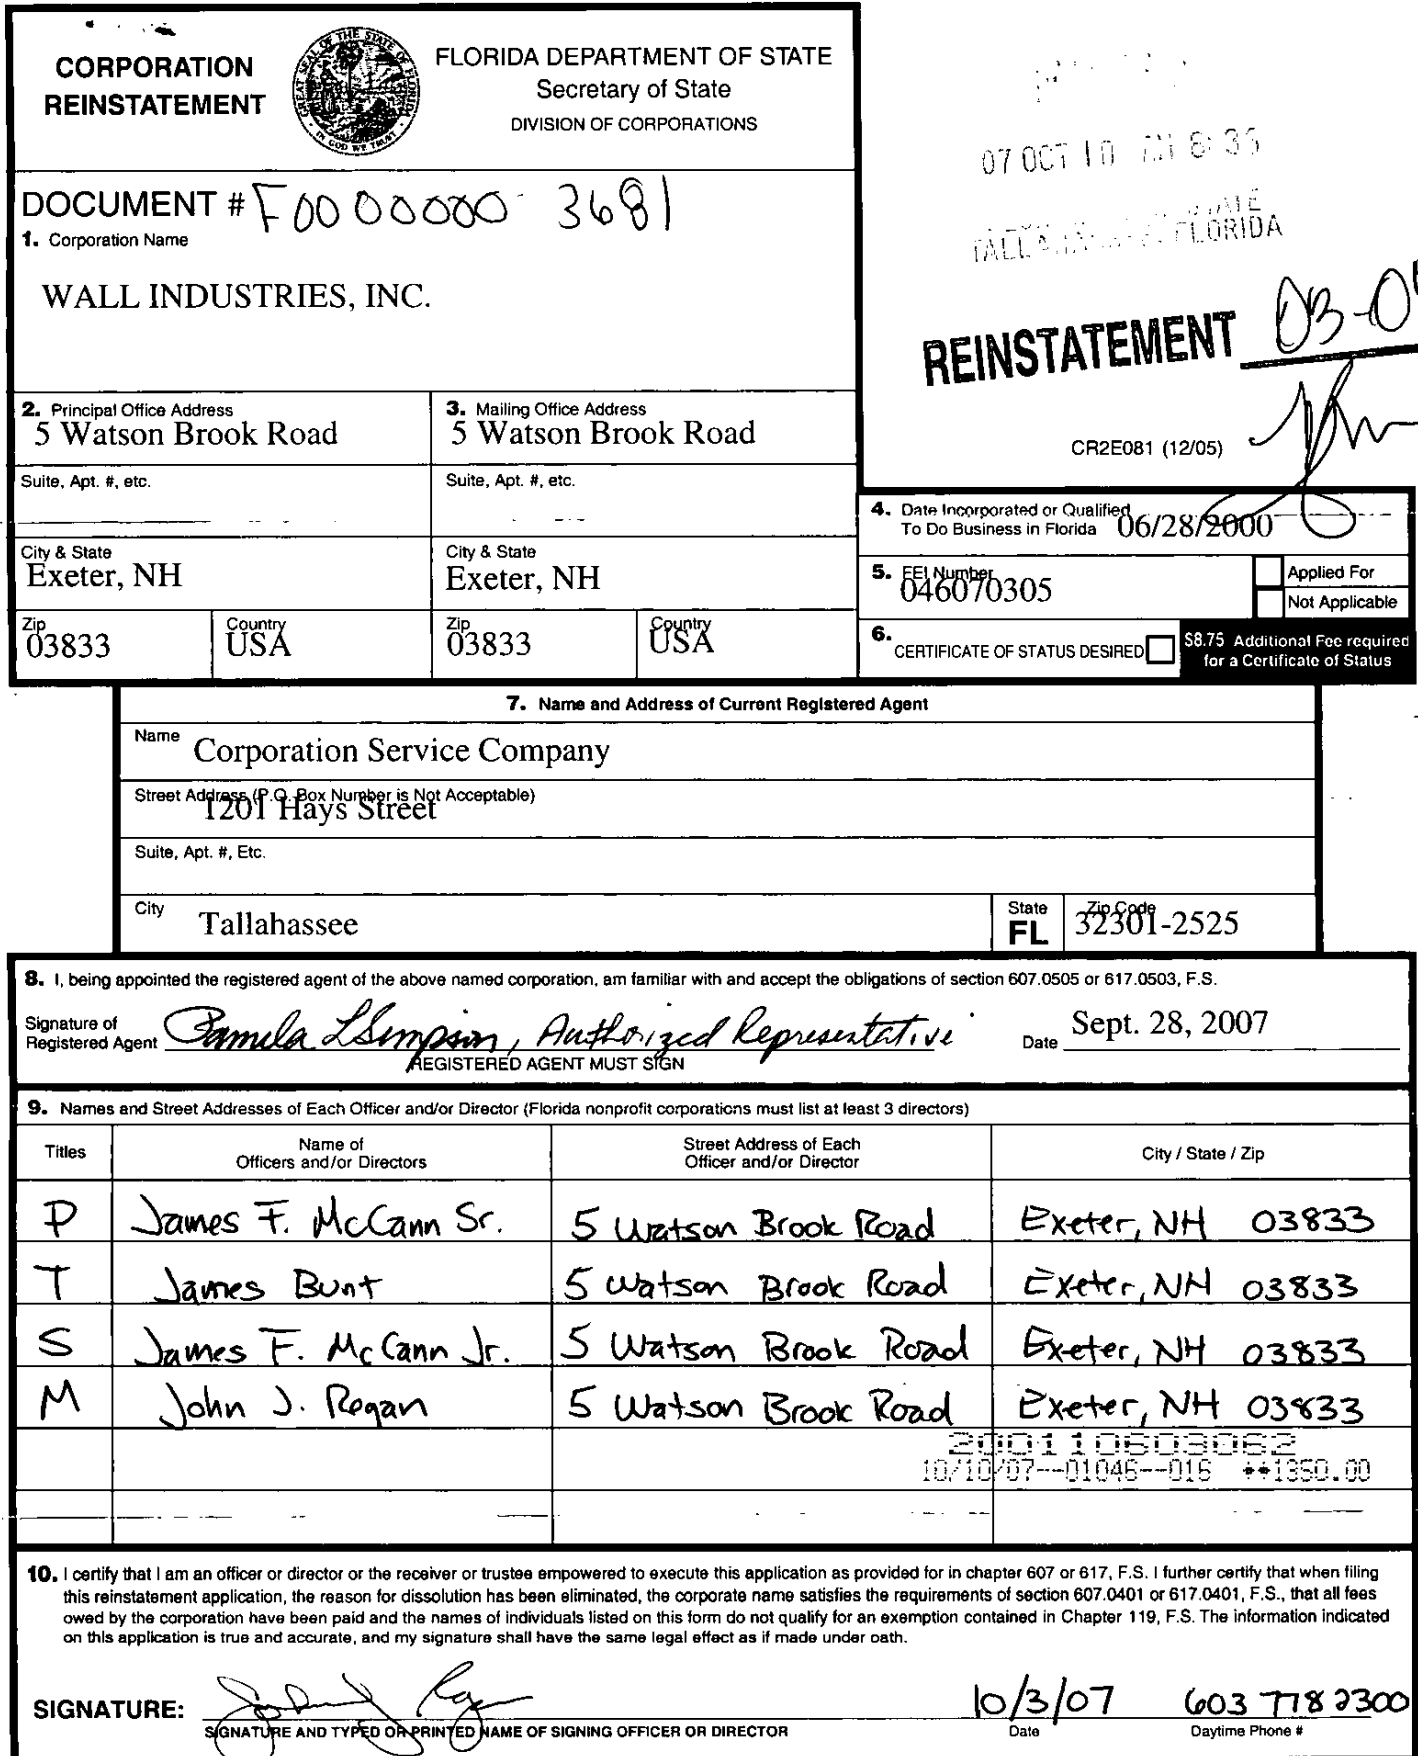 CORPORATION
REINSTATEMENT
GREAT SEAL OF THE STATE OF FLORIDA
IN GOD WE TRUST
FLORIDA DEPARTMENT OF STATE
Secretary of State
DIVISION OF CORPORATIONS
07 OCT 10 AM 8:35
FLORIDA
DOCUMENT # F00 00000 3681
1. Corporation Name
WALL INDUSTRIES, INC.
REINSTATEMENT 03-0
CR2E081 (12/05)
2. Principal Office Address
5 Watson Brook Road
3. Mailing Office Address
5 Watson Brook Road
Suite, Apt. #, etc.
Suite, Apt. #, etc.
City & State
Exeter, NH
City & State
Exeter, NH
Zip
03833
Country
USA
Zip
03833
Country
USA
4. Date Incorporated or Qualified
To Do Business in Florida 06/28/2000
5. FEI Number
046070305
Applied For
Not Applicable
6. CERTIFICATE OF STATUS DESIRED
$8.75 Additional Fee required
for a Certificate of Status
7. Name and Address of Current Registered Agent
Name Corporation Service Company
Street Address (P.O. Box Number is Not Acceptable)
1201 Hays Street
Suite, Apt. #, Etc.
City Tallahassee
State
FL
Zip Code
32301-2525
8. I, being appointed the registered agent of the above named corporation, am familiar with and accept the obligations of section 607.0505 or 617.0503, F.S.
Signature of
Registered Agent Pamela L Simpson, Authorized Representative
REGISTERED AGENT MUST SIGN
Date Sept. 28, 2007
9. Names and Street Addresses of Each Officer and/or Director (Florida nonprofit corporations must list at least 3 directors)
Titles
Name of
Officers and/or Directors
Street Address of Each
Officer and/or Director
City / State / Zip
P James F. McCann Sr. 5 Watson Brook Road Exeter, NH 03833
T James Bunt 5 Watson Brook Road Exeter, NH 03833
S James F. McCann Jr. 5 Watson Brook Road Exeter, NH 03833
M John J. Regan 5 Watson Brook Road Exeter, NH 03833
200110603062
10/10/07--01046--016 **1350.00
10. I certify that I am an officer or director or the receiver or trustee empowered to execute this application as provided for in chapter 607 or 617, F.S. I further certify that when filing
this reinstatement application, the reason for dissolution has been eliminated, the corporate name satisfies the requirements of section 607.0401 or 617.0401, F.S., that all fees
owed by the corporation have been paid and the names of individuals listed on this form do not qualify for an exemption contained in Chapter 119, F.S. The information indicated
on this application is true and accurate, and my signature shall have the same legal effect as if made under oath.
SIGNATURE:
SIGNATURE AND TYPED OR PRINTED NAME OF SIGNING OFFICER OR DIRECTOR
10/3/07
Date
603 778 2300
Daytime Phone #